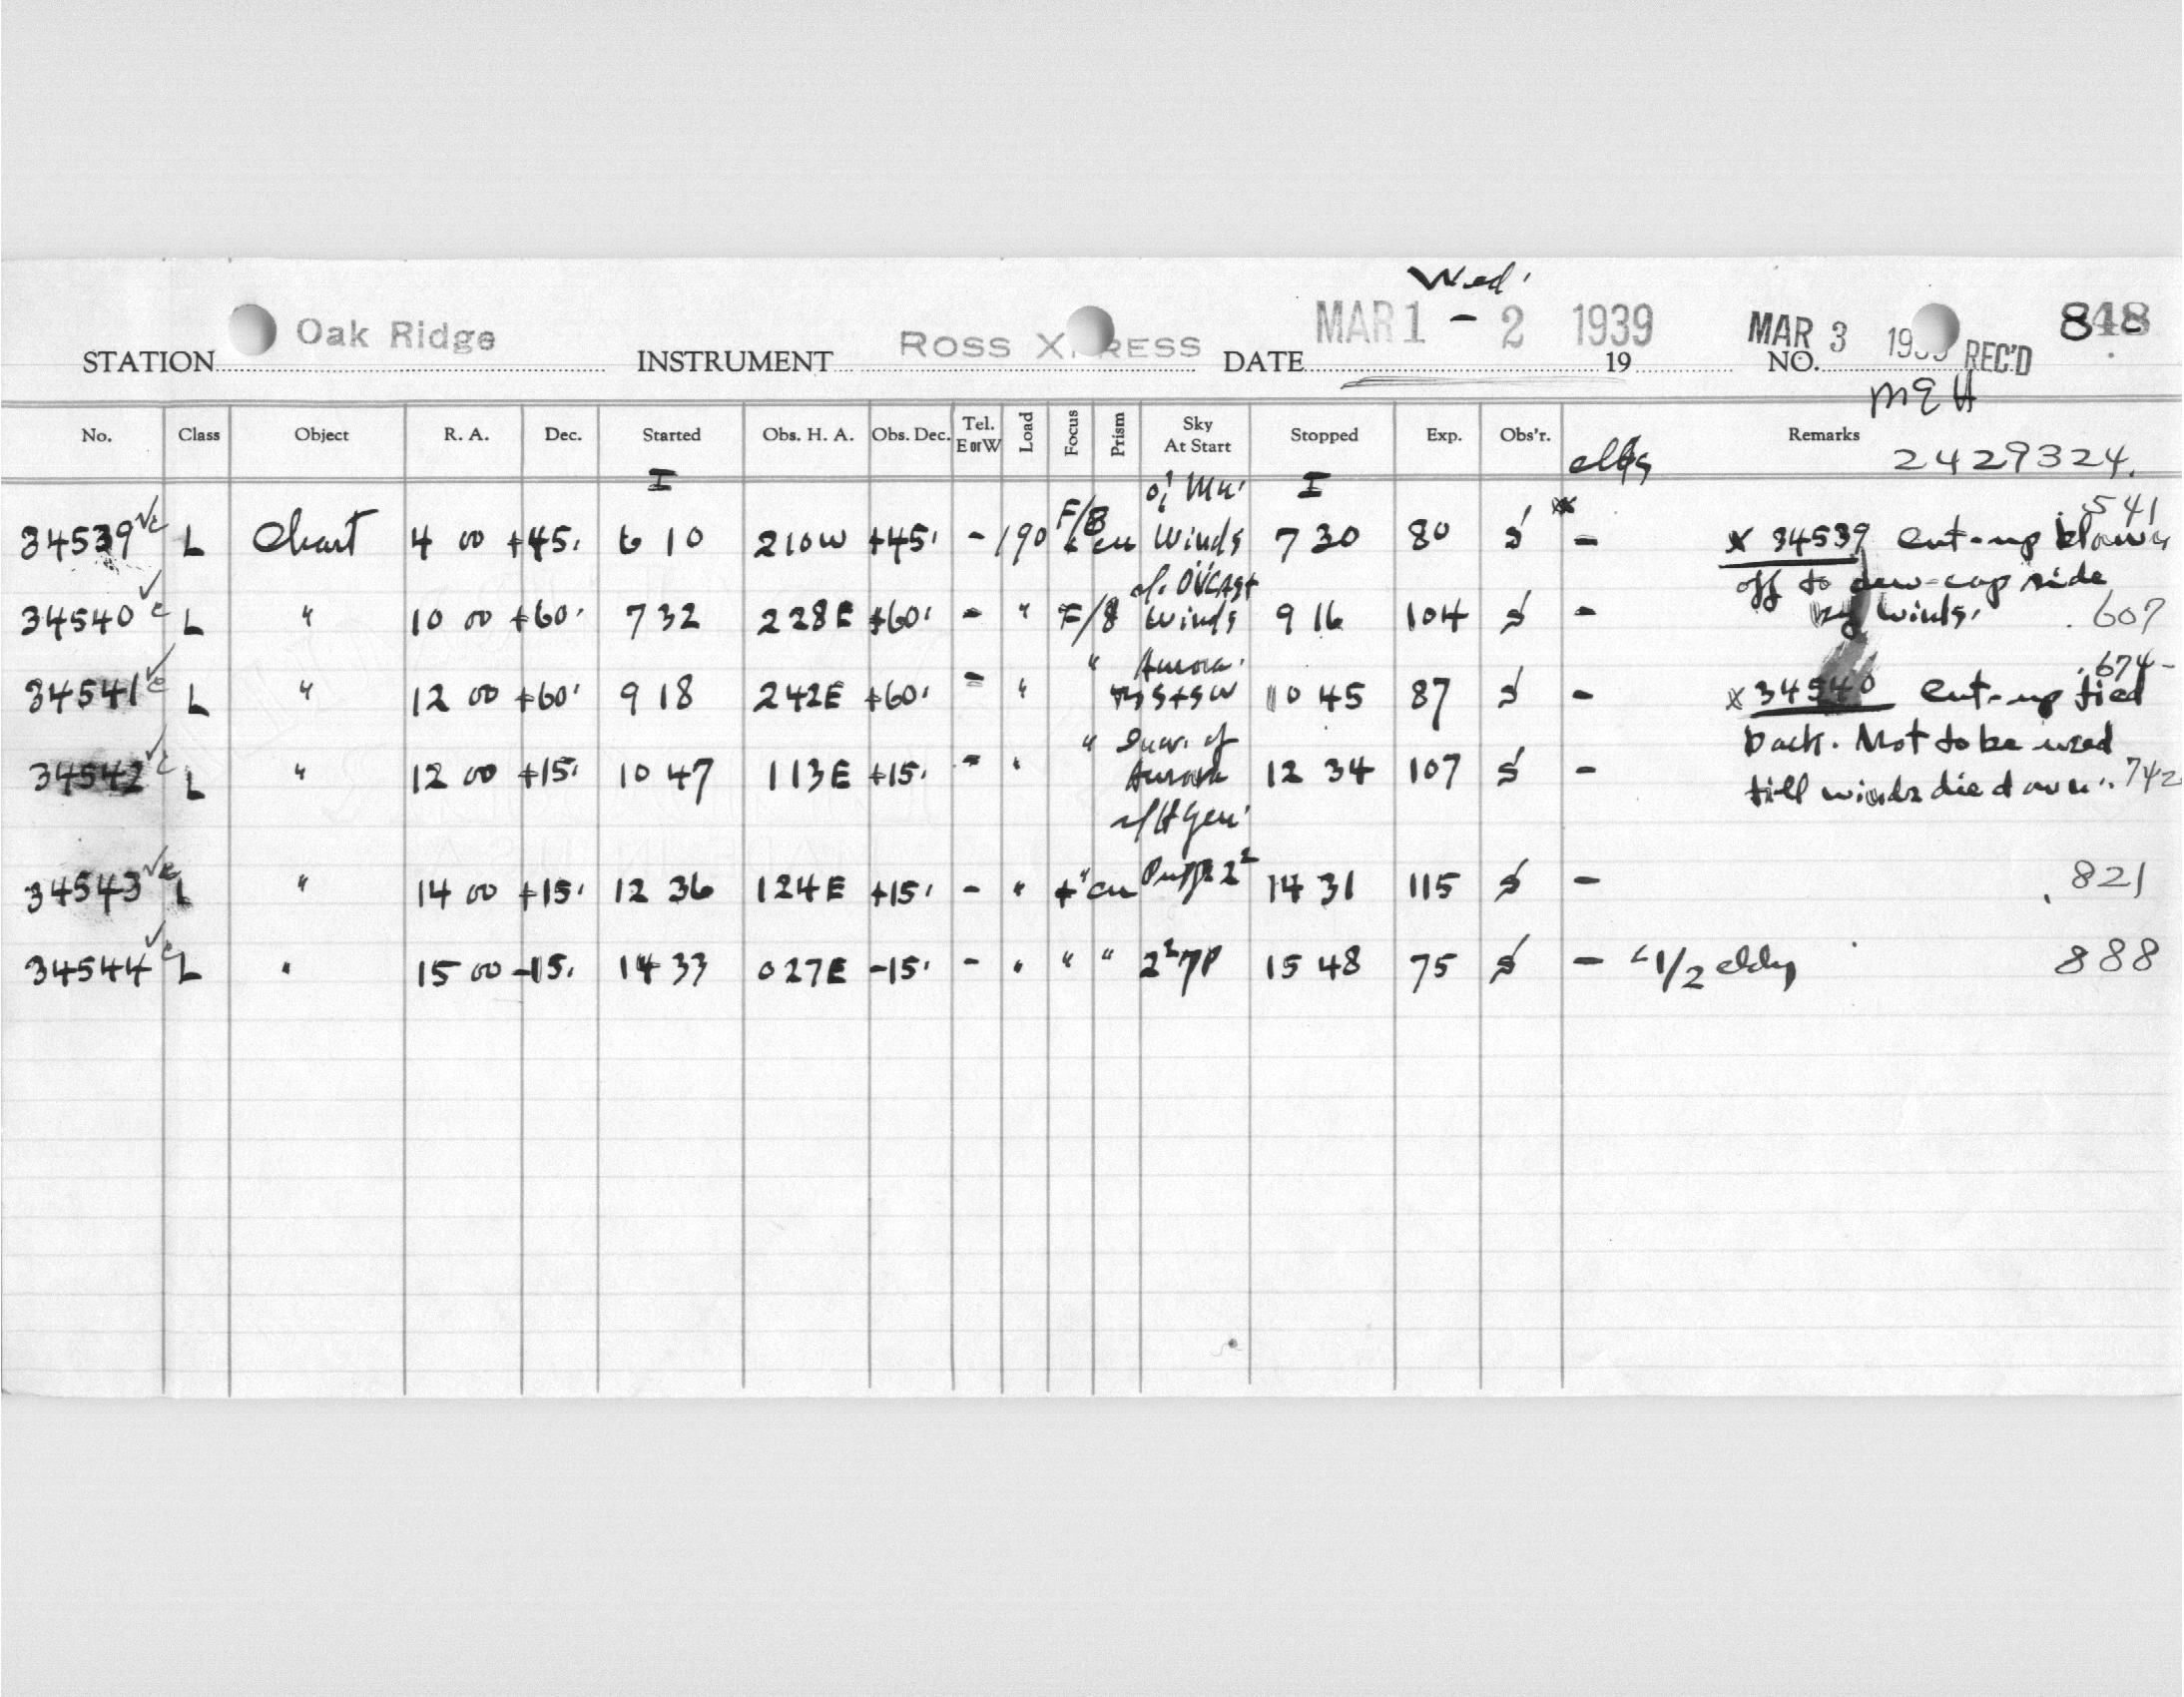 Wed'
STATION Oak Ridge INSTRUMENT ROSS X RESS DATE MAR 1 - 2 1939 19 MAR 3 19 REC'D NO. 848
No. Class Object R. A. Dec. Started Obs. H. A. Obs. Dec. Tel. E or W Load Focus Prism Sky At Start Stopped Exp. Obs'r. Remarks
2429324.
I I
34539 L Chart 4 00 +45. 6 10 210W +45' - 190 F/8 Winds 7 30 80 S - .541
x 34539 Cut-up blown
off to dew-cap side
by winds.
34540 L " 10 00 +60' 7 32 228E +60' - " F/8 Winds 9 16 104 S - .607
34541 L " 12 00 +60' 9 18 242E +60' - " " Aurora. S+SW 10 45 87 S - .674
x 34540 Cut-up tied
back. Not to be used
till winds die down.
34542 L " 12 00 +15. 10 47 113E +15. - " " of Aurora 12 34 107 S - .742
34543 L " 14 00 +15. 12 36 124E +15. - " " 14 31 115 S - .821
34544 L " 15 00 -15. 14 33 027E -15. - " " " 15 48 75 S - 1/2 888